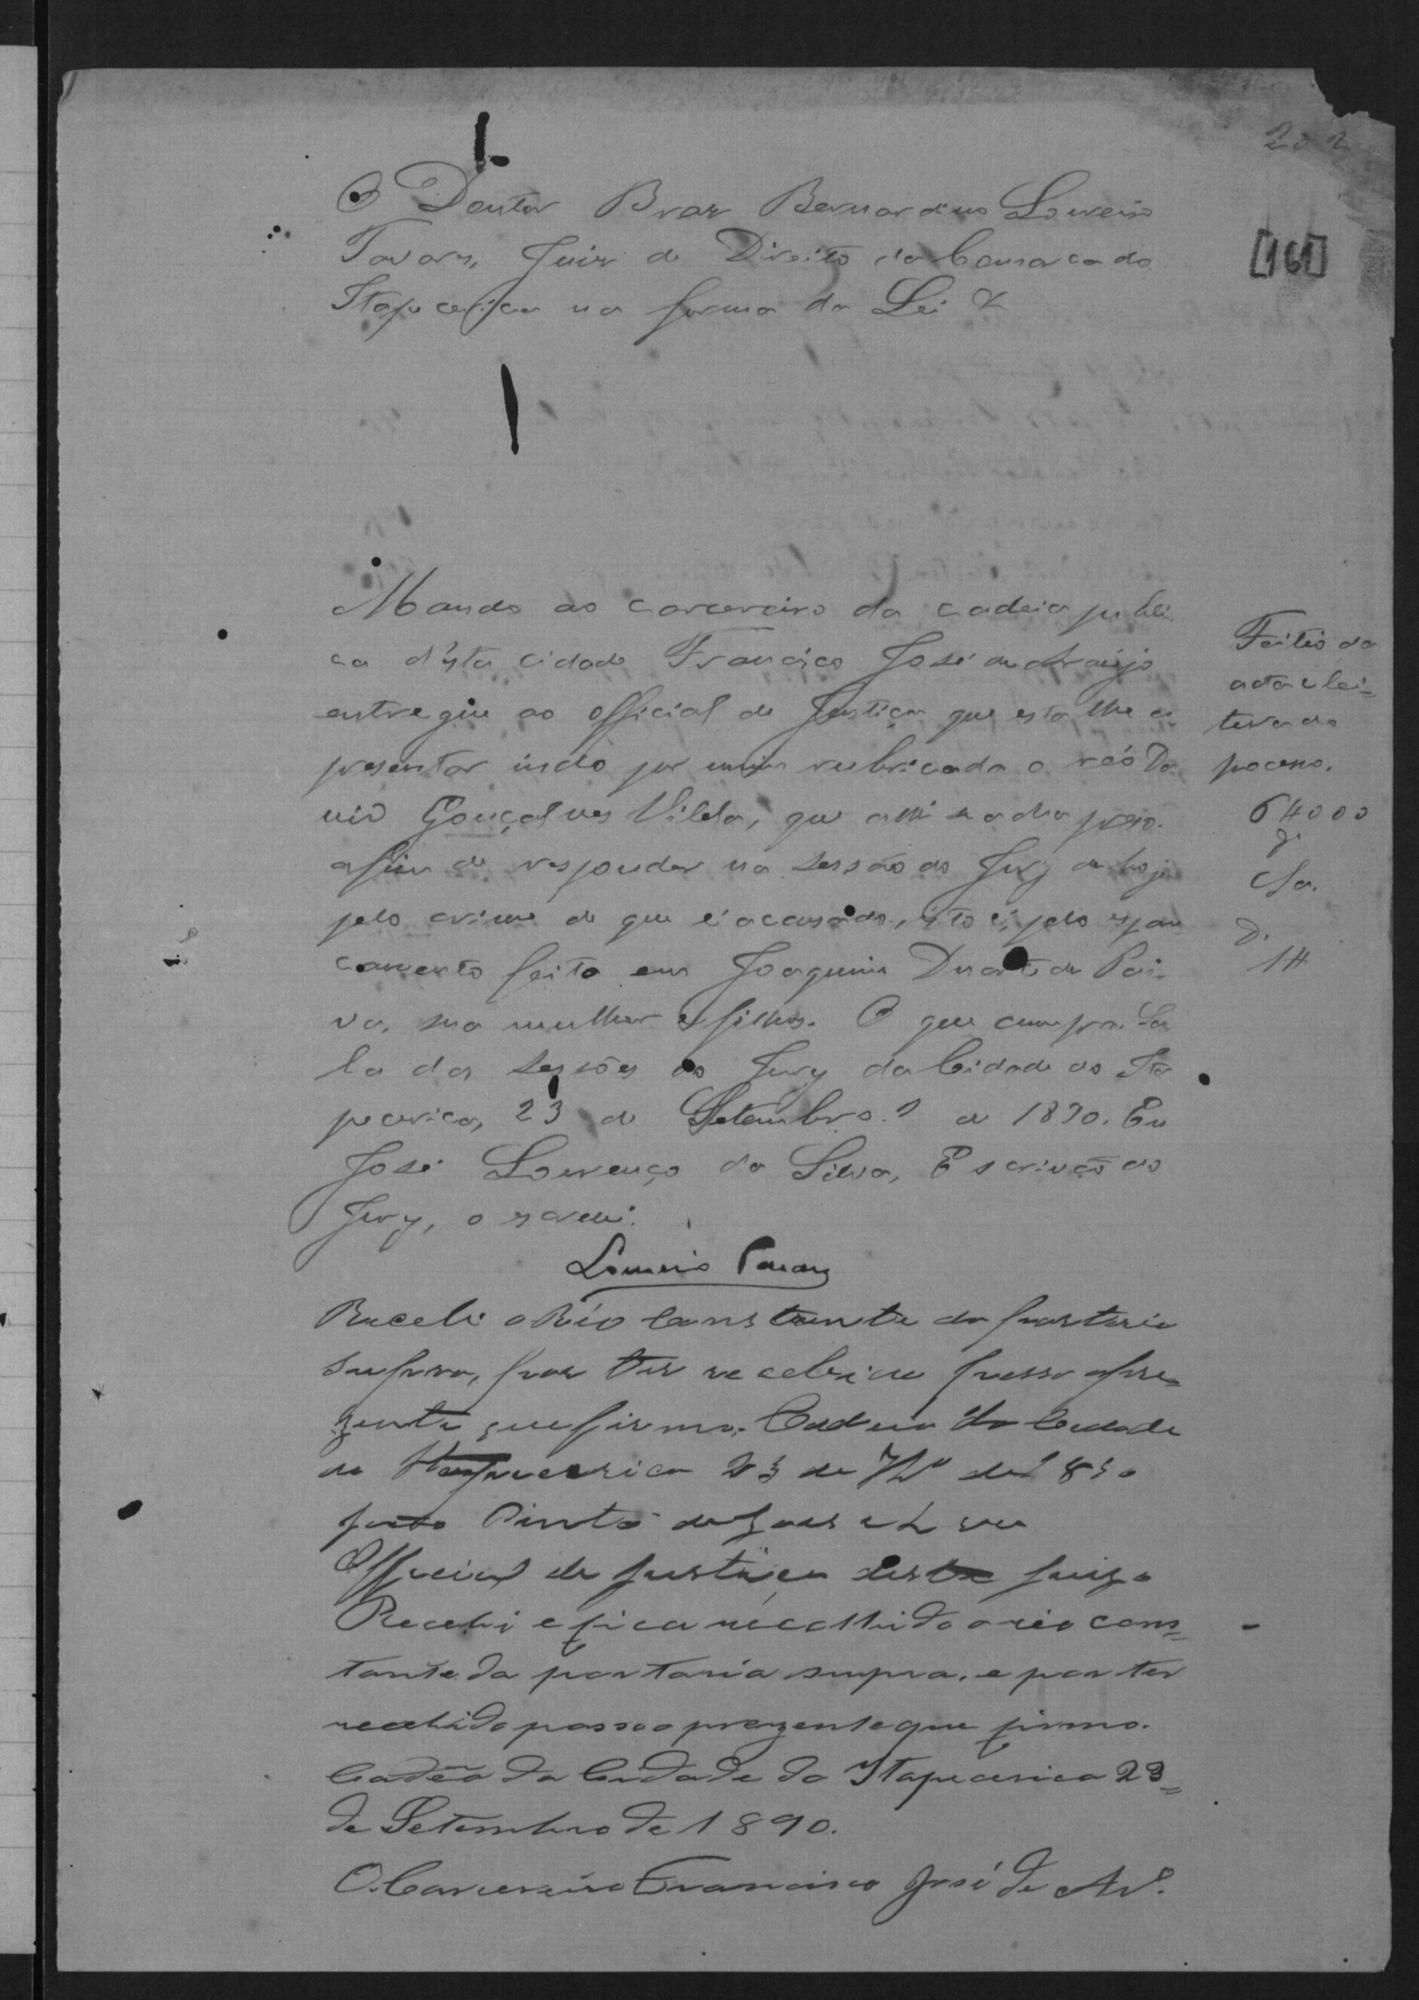 202
[161]
O Doutor Braz Bernardino Loureiro
Tavares, Juiz de Direito da Comarca do
Itapecerica na forma da Lei &
Mando ao carcereiro da cadeia publi
ca d'esta cidade Francisco José de Araujo
entregue ao official de Justiça que esta lhe a
presentar indo por mim rubricada o réo Da
vid Gonçalves Vilela, que ahi se acha preso.
afim de responder na sessão do Jury de hoje
pelo crime de que é accusado, isto é, pelo espan
camento feito em Joaquim Duarte de Pai-
va, sua mulher e filhos. O que cumpra. Sa
la das sessões do Jury da Cidade do Ita
pecerica, 23 de Setembro de 1890. Eu
José Lourenço da Silva, Escrivão do
Jury, o escrevi.
Loureiro Tavares
Feitio da
acta e lei-
tura do
6#000
1#
Recebi o Réo Constante da portaria
supra, por ter recebido passo o pre-
zente que firmo. Cadeia da Cidade
de Itapecerica 23 de 7bro de 1890
Pinto de
Official de justiça deste juizo
Recebi e fica recolhido o réo cons=
tante da portaria supra, e por ter
recebido passo o prezente que firmo.
Cadêa da Cidade do Itapecerica 23=
de Setembro de 1890.
O Carcereiro Francisco José de Arº.